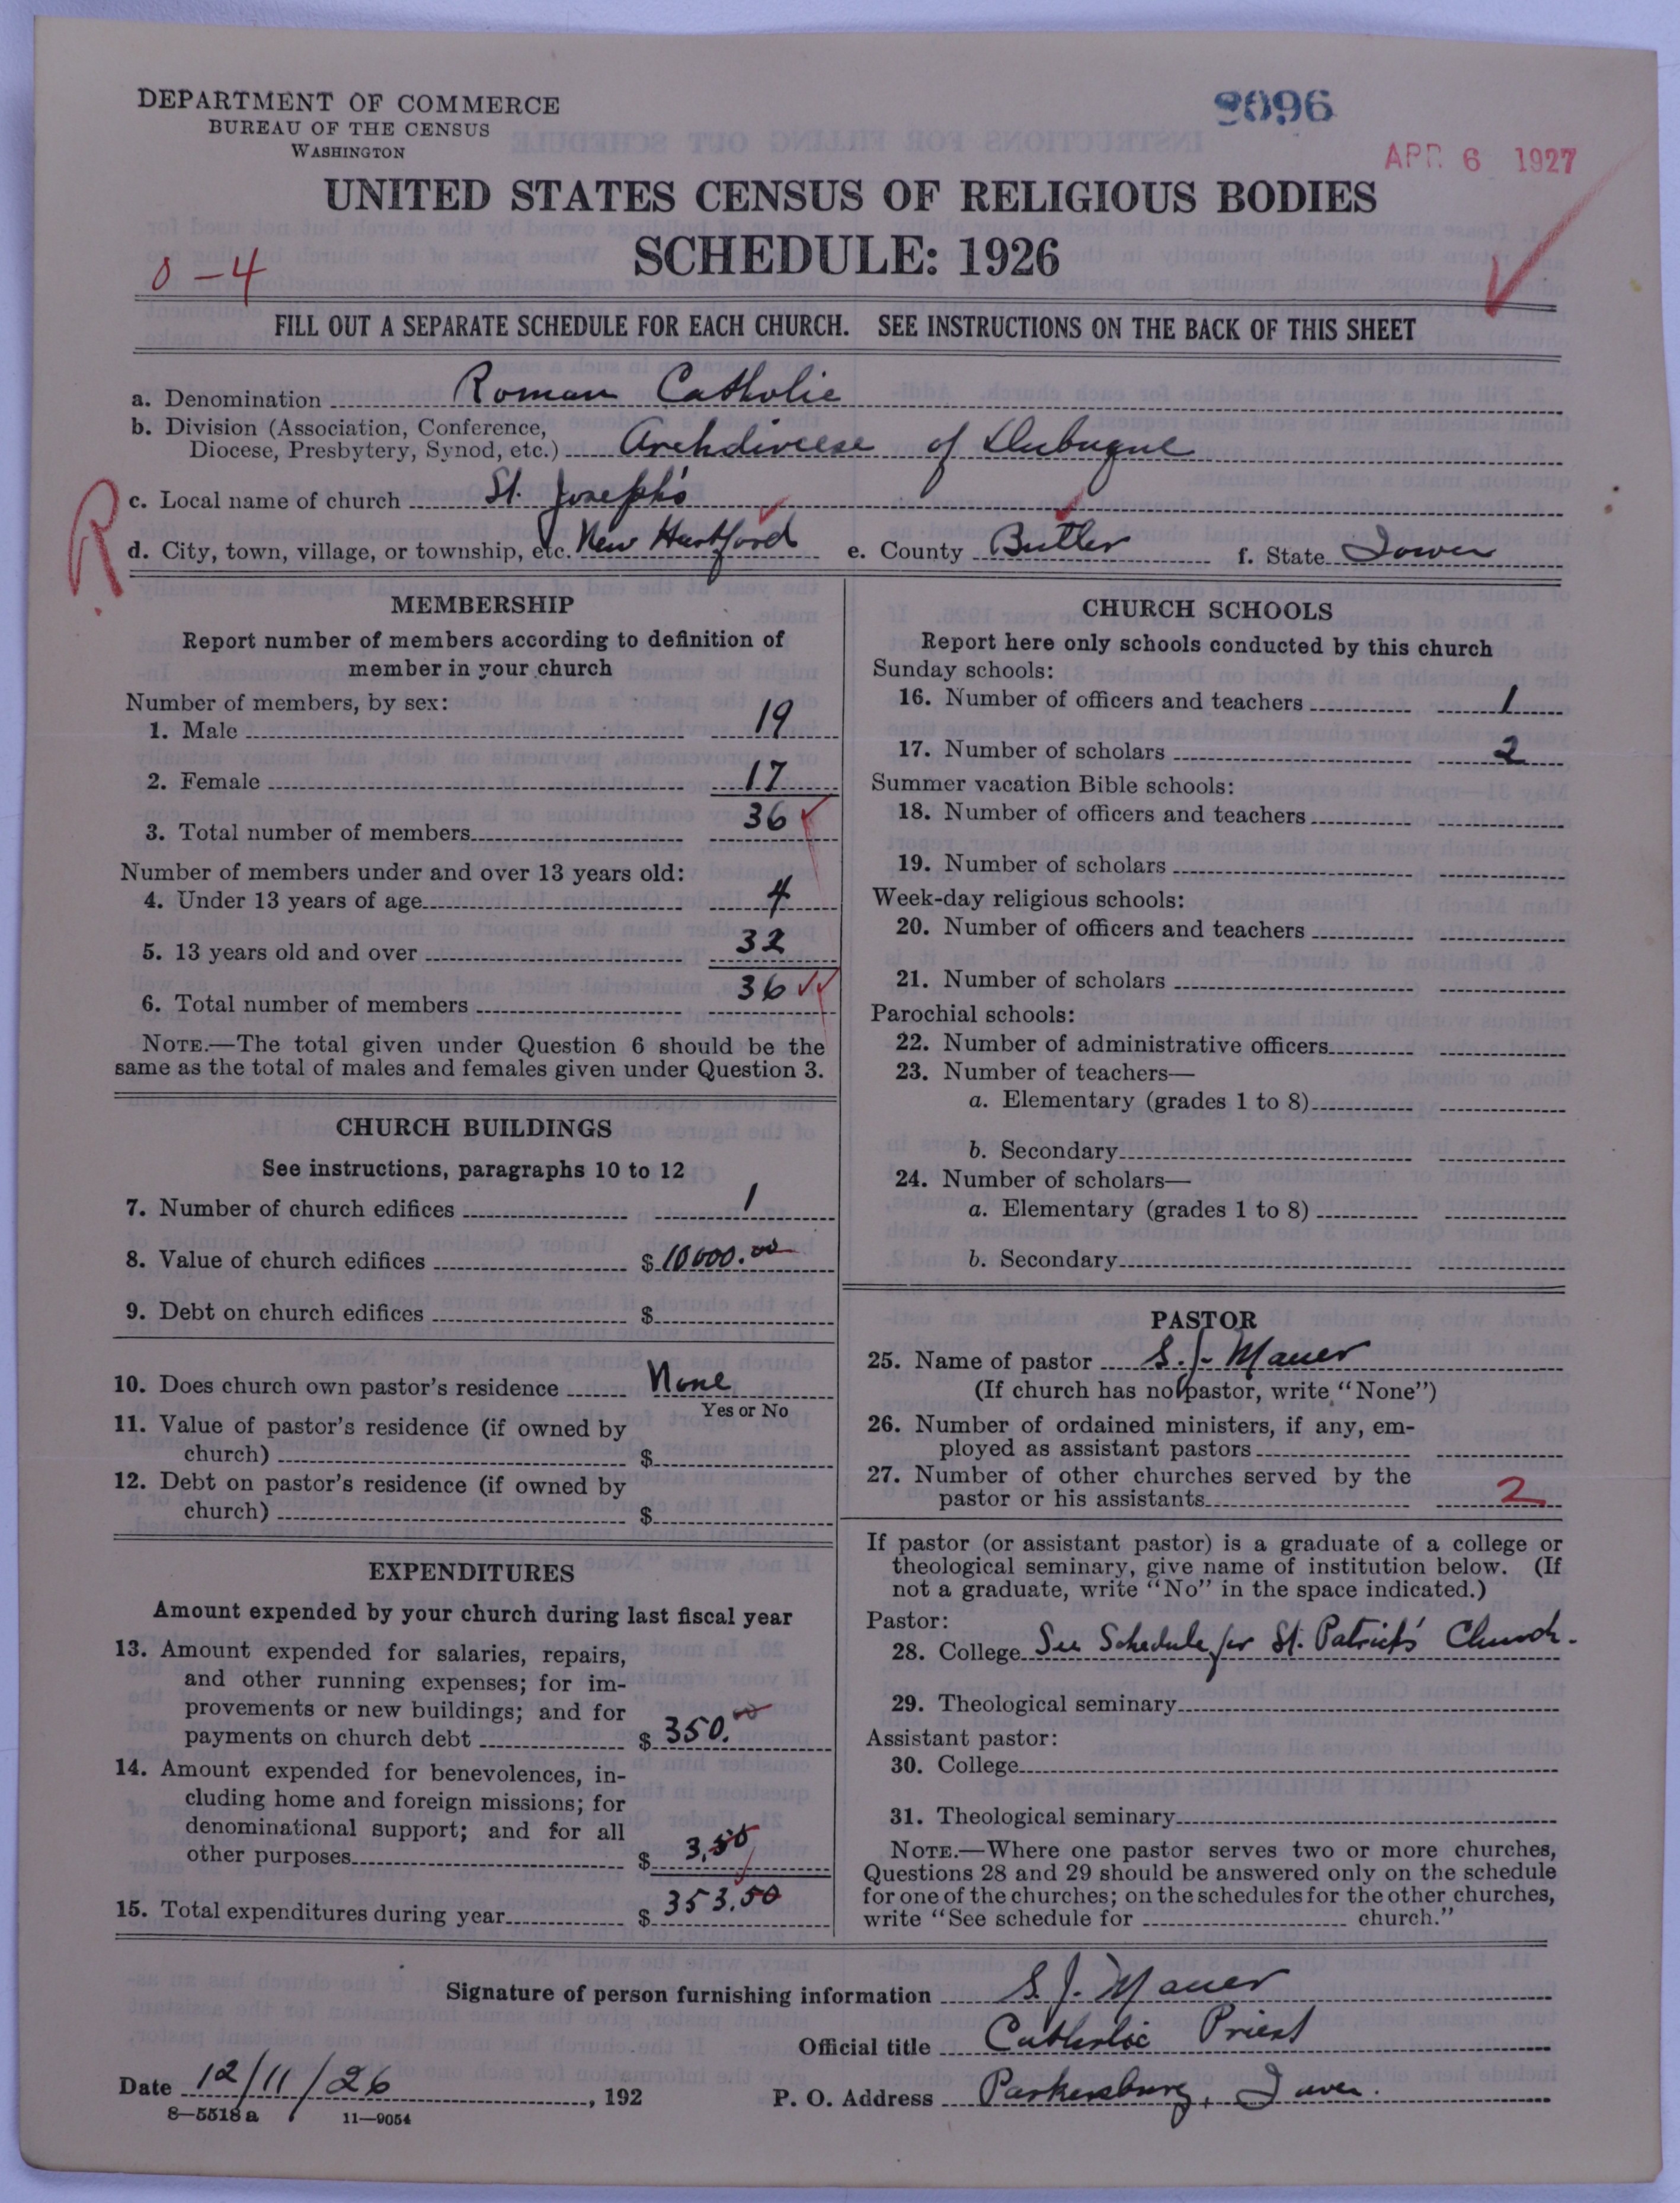 DEPARTMENT OF COMMERCE
BUREAU OF THE CENSUS
WASHINGTON
8096
APR 6 1927
UNITED STATES CENSUS OF RELIGIOUS BODIES
SCHEDULE: 1926
0-4
FILL OUT A SEPARATE SCHEDULE FOR EACH CHURCH. SEE INSTRUCTIONS ON THE BACK OF THIS SHEET
a. Denomination Roman Catholic
b. Division (Association, Conference,
Diocese, Presbytery, Synod, etc.) Archdiocese of Dubuque
R
c. Local name of church St. Joseph's
d. City, town, village, or township, etc. New Hartford e. County Butler f. State Iowa
MEMBERSHIP
Report number of members according to definition of
member in your church
Number of members, by sex:
1. Male 19
2. Female 17
3. Total number of members 36
Number of members under and over 13 years old:
4. Under 13 years of age 4
5. 13 years old and over 32
6. Total number of members 36
NOTE.—The total given under Question 6 should be the
same as the total of males and females given under Question 3.
CHURCH BUILDINGS
See instructions, paragraphs 10 to 12
7. Number of church edifices 1
8. Value of church edifices $ 10000.00
9. Debt on church edifices $
10. Does church own pastor's residence None
Yes or No
11. Value of pastor's residence (if owned by
church) $
12. Debt on pastor's residence (if owned by
church) $
EXPENDITURES
Amount expended by your church during last fiscal year
13. Amount expended for salaries, repairs,
and other running expenses; for im-
provements or new buildings; and for
payments on church debt $ 350.00
14. Amount expended for benevolences, in-
cluding home and foreign missions; for
denominational support; and for all
other purposes $ 3.50
15. Total expenditures during year $ 353.50
CHURCH SCHOOLS
Report here only schools conducted by this church
Sunday schools:
16. Number of officers and teachers 1
17. Number of scholars 2
Summer vacation Bible schools:
18. Number of officers and teachers
19. Number of scholars
Week-day religious schools:
20. Number of officers and teachers
21. Number of scholars
Parochial schools:
22. Number of administrative officers
23. Number of teachers—
a. Elementary (grades 1 to 8)
b. Secondary
24. Number of scholars—
a. Elementary (grades 1 to 8)
b. Secondary
PASTOR
25. Name of pastor S. J. Mauer
(If church has no pastor, write "None")
26. Number of ordained ministers, if any, em-
ployed as assistant pastors
27. Number of other churches served by the
pastor or his assistants 2
If pastor (or assistant pastor) is a graduate of a college or
theological seminary, give name of institution below. (If
not a graduate, write "No" in the space indicated.)
Pastor:
28. College See Schedule for St. Patrick's Church.
29. Theological seminary
Assistant pastor:
30. College
31. Theological seminary
NOTE.—Where one pastor serves two or more churches,
Questions 28 and 29 should be answered only on the schedule
for one of the churches; on the schedules for the other churches,
write "See schedule for church."
Signature of person furnishing information S. J. Mauer
Official title Catholic Priest
Date 12/11/26, 192
P. O. Address Parkersburg, Iowa.
8—5518 a 11—9054